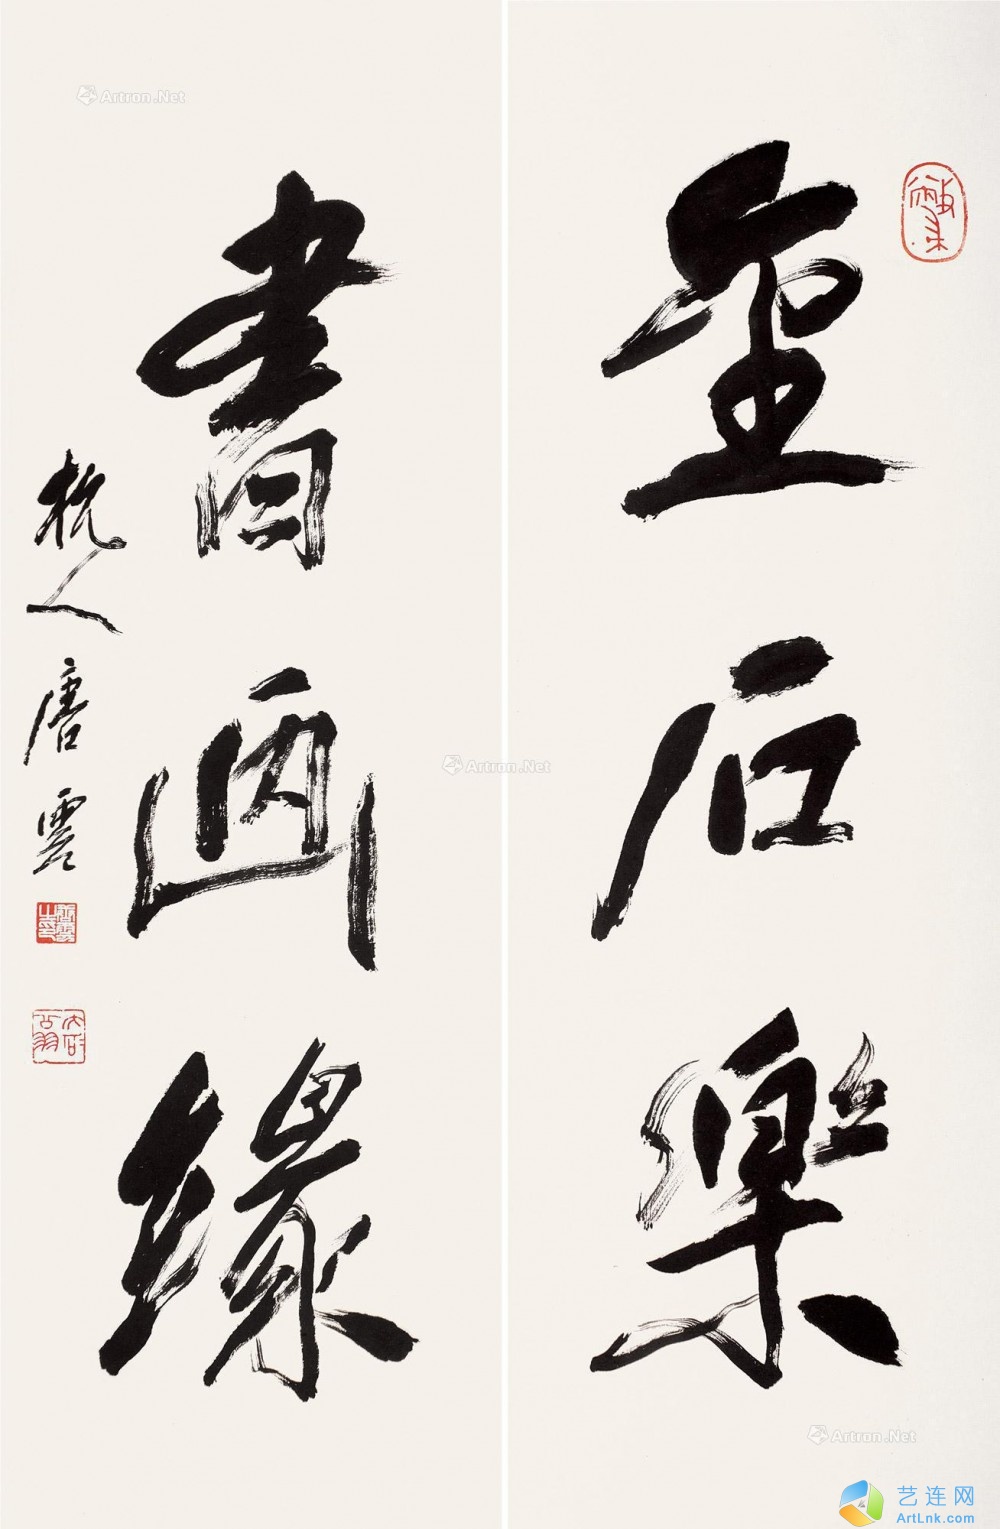 金石樂
書画緣
杭人唐雲
Artron.Net
Artron.Net
Artron.Net
艺连网
ArtLnk.com